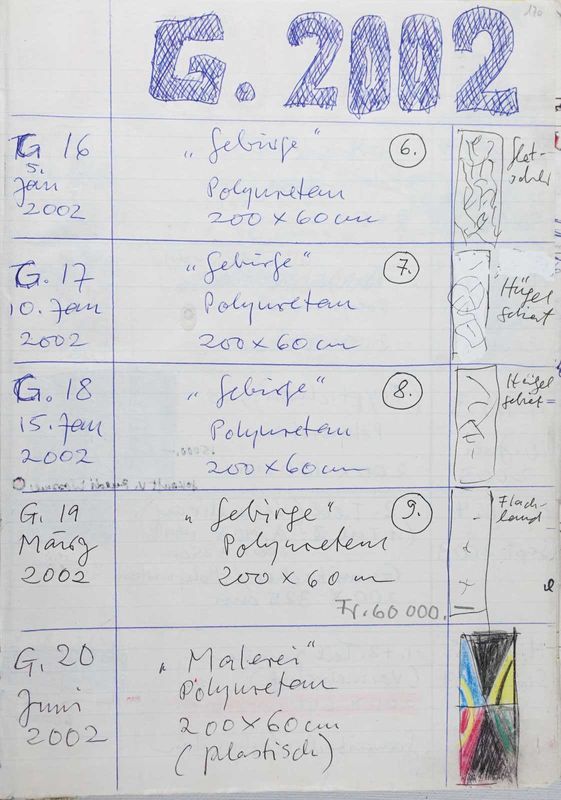 170
G. 2002
G 16 „Gebirge“ 6. Glet-
5. scher
Jan Polyuretan
2002 200 x 60 cm
G. 17 „Gebirge“ 7. Hügel
10. Jan Polyuretan gebiet
2002 200 x 60 cm
G. 18 „Gebirge“ 8. Hügel
15. Jan Polyuretan gebiet
2002 200 x 60 cm
G. 19 „Gebirge“ 9. Flach-
März Polyuretan land
2002 200 x 60 cm
Fr. 60 000.—
G. 20 „Malerei“
Juni Polyuretan
2002 200 x 60 cm
(plastisch)